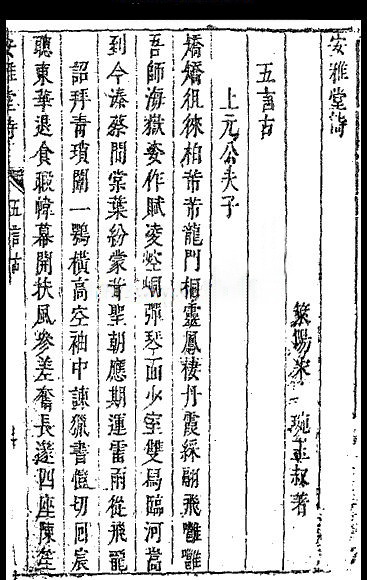 安雅堂詩
萊陽宋琬玉叔著
五言古
上元公夫子
矯矯徂徠柏芾芾龍門桐靈鳳棲丹霞綵翮飛雝雝
吾師海嶽委作賦凌崆峒彈琴面少室雙舄臨河嵩
到今溱蔡間棠葉紛蒙茸聖朝應期運雷雨從飛龍
詔拜青瑣闥一鶚橫高空袖中諫獵書愷切回宸
聰東華退食暇幃幕開扶風參差奮長邃四座陳笙
安雅堂詩
五言古